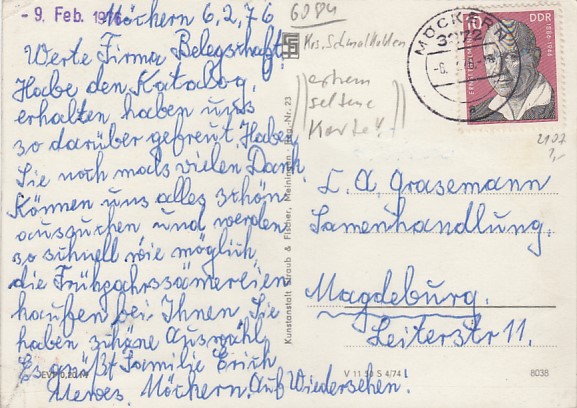 - 9. Feb. 1976
Möckern 6,2,76
Werte Firma Belegschaft
Habe den Katalog,
erhalten, haben uns
so darüber gefreut, Haben
Sie noch mals vielen Dank
Können uns alles schön
aussuchen und werden
so schnell wie möglich,
die Frühjahrssämereien
kaufen bei Ihnen. Sie
haben schöne Auswahl
Es grüßt Familie Erich
Mewes. Möckern. Auf Wiedersehen!
EVP 0,20 M
6084
Krs. Schmalkalden
extrem
seltene
Karte!!
Kunstanstalt Straub & Fischer, Meiningen Reg.-Nr. 23
MÖCKERN
3272
10
DDR
1886-1944
ERNST
2107
1,-
L. A. Grasemann
Samenhandlung.
Magdeburg.
Leiterstr 11.
V 11 50 S 4/74
8038